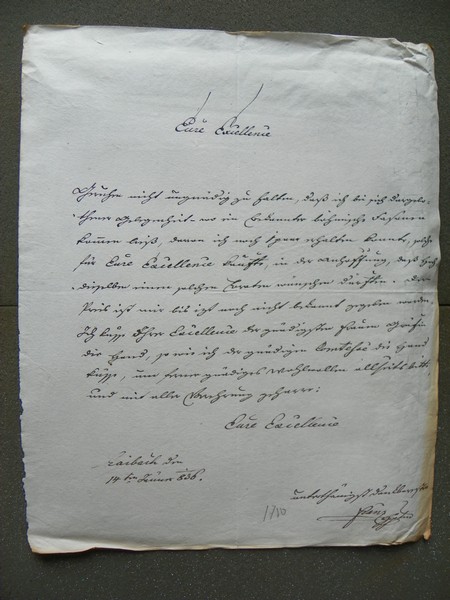 Eure Excellence
Geruhen nicht ungnädig zu halten, daß ich bei sich dargebo-
thener Gelegenheit wo ein Bekannter böhmische Fasanen
kommen ließ, davon ich noch erhalten konnte, solche
für Eure Excellence kaufte, in der Anhoffung, daß Hoch
dieselbe einen solchen wünschen dürften. Der
Preis ist mir bis itzt noch nicht bekannt gegeben worden.
Ich küsse Ihrer Excellence der gnädigsten Frauen Gräfin
die Hand, so wie ich der gnädigen Comtesse die Hand
küsse, um ferner gnädiges Wohlwollen bitte
und mit aller Verehrung geharre:
Eure Excellence
Laibach den
14ten Jänner 836.
unterthänigst
1710